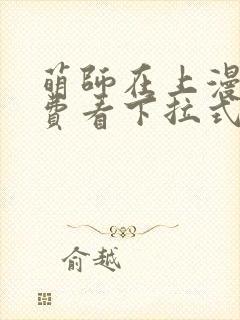 萌師在上漫
費看下拉式
俞越